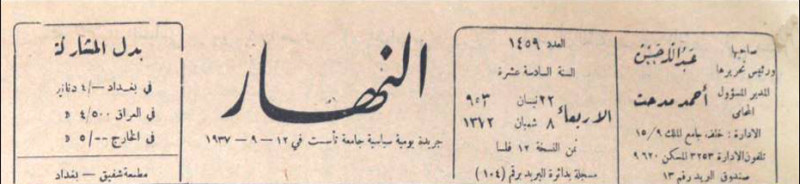 صاحبها
ورئيس تحريرها
عبد الله حسين
المدير المسؤول
المحامي
أحمد مدحت
الادارة : خلف جامع الملك ١٥/٩
تلفون الادارة ٣٢٥٣ المسكن ٩٦٢٠
صندوق البريد رقم ١٣
العدد ١٤٥٩
السنة السادسة عشرة
الاربعاء
٢٢ نيسان ٩٥٣
٨ شعبان ١٣٧٢
ثمن النسخة ١٢ فلسا
مسجلة بدائرة البريد برقم (١٠٤)
النهار
جريدة يومية سياسية جامعة تأسست في ١٢ – ٩ – ١٩٣٧
بدل المشاركة
في بغداد –/٤ دنانير
في العراق ٤/٥٠٠ د
في الخارج ٥/–– د
مطبعة شفيق – بغداد